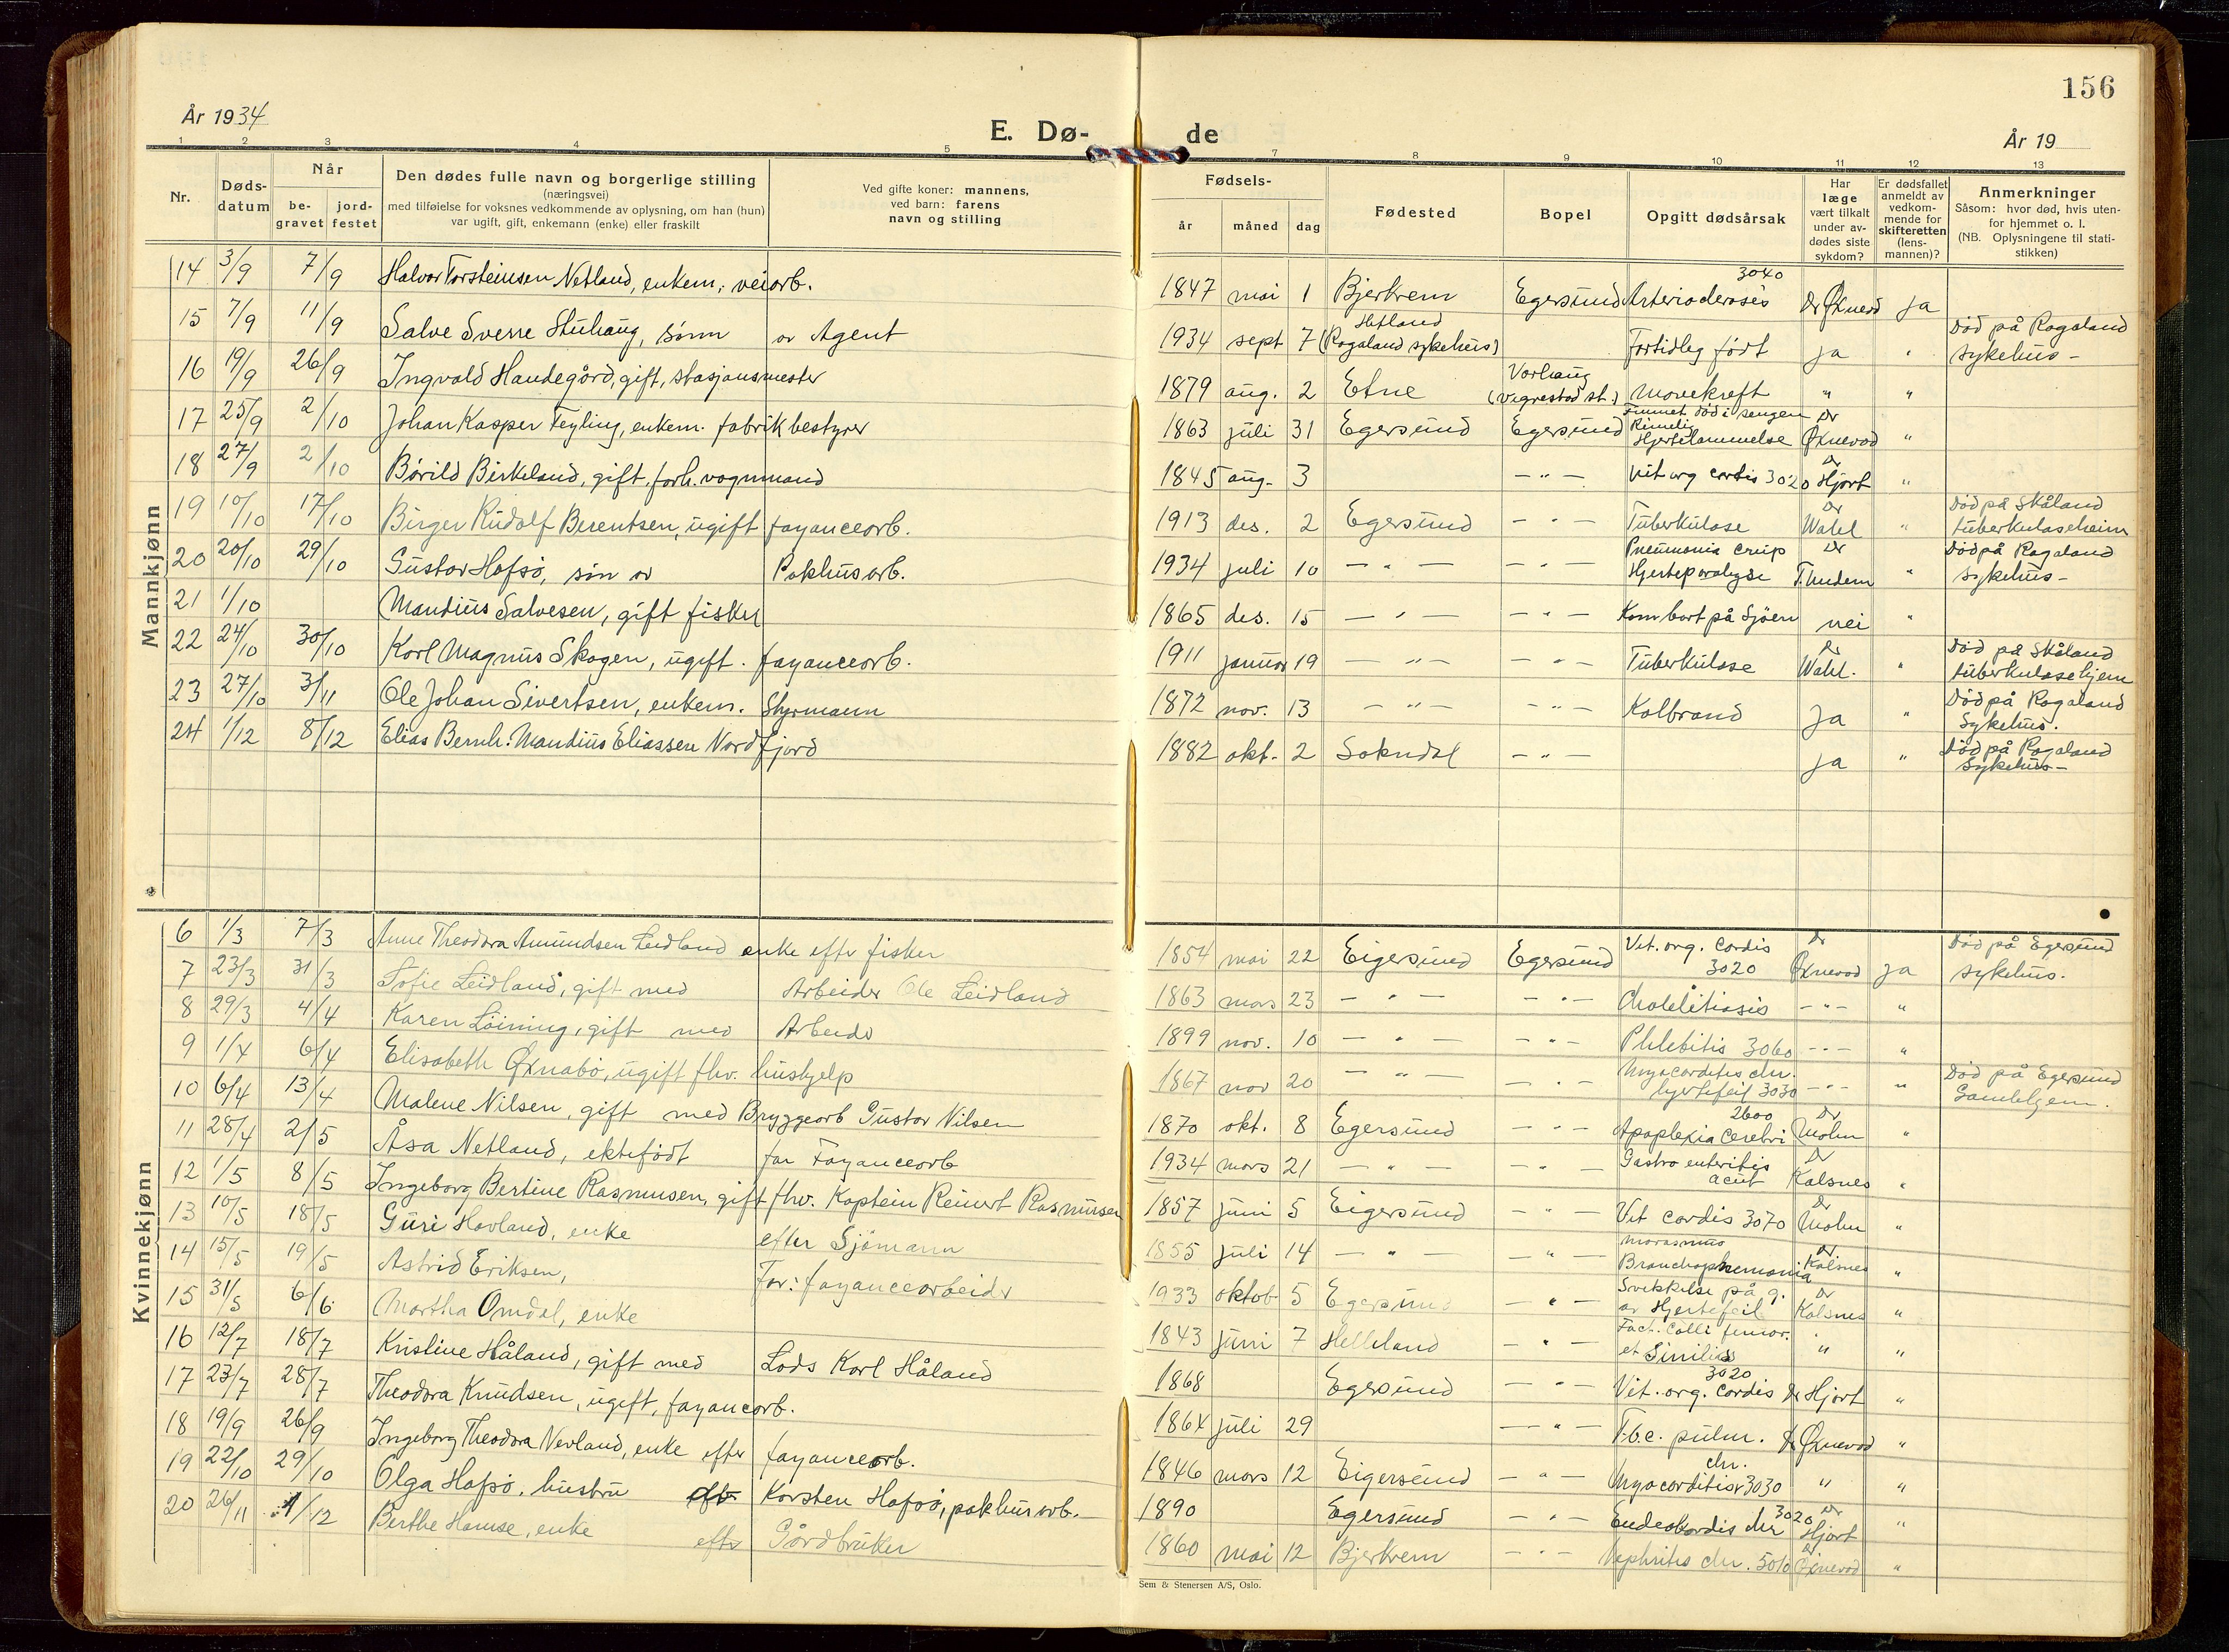 156
År 1934
E. Dø-
de
År 19
1 2 3 4 5 7 8 9 10 11 12 13
Nr.
Døds-
datum
Når
be-
gravet
jord-
festet
Den dødes fulle navn og borgerlige stilling
(næringsvei)
med tilføielse for voksnes vedkommende av oplysning, om han (hun)
var ugift, gift, enkemann (enke) eller fraskilt
Ved gifte koner: mannens,
ved barn: farens
navn og stilling
Fødsels-
år måned dag
Fødested
Bopel
Opgitt dødsårsak
Har
læge
vært tilkalt
under av-
dødes siste
sykdom?
Er dødsfallet
anmeldt av
vedkom-
mende for
skifteretten
(lens-
mannen)?
Anmerkninger
Såsom: hvor død, hvis uten-
for hjemmet o. l.
(NB. Oplysningene til stati-
stikken)
Mannkjønn
14 3/9 7/9 Halvor Torsteinsen Netland, enkem, veiarb.
15 7/9 11/9 Salve Sverre Stuhaug, sönn av Agent
16 19/9 26/9 Ingvald Handegård, gift, stasjonsmester
17 25/9 2/10 Johan Kasper Feyling, enkem. fabrikbestyrer
18 27/9 2/10 Bårild Birkeland, gift, forh. vognmand
19 10/10 17/10 Birger Rudolf Berentsen, ugift fayancearb.
20 20/10 29/10 Gustav Hofsö, sön av Pakhusarb.
21 1/10 Mandius Salvesen, gift fisker
22 24/10 30/10 Karl Magnus Skogen, ugift. fayancearb.
23 27/10 3/11 Ole Johan Sivertsen, enkem. Styrmann
24 1/12 8/12 Elias Bernh. Mandius Eliassen Nordfjord
3040
1847 mai 1 Bjerkrem Egersund Arteriosclerosis Dr Øxnevad ja
Hetland
1934 sept 7 (Rogaland sykehus) Fortidleg født ja " Död på Rogaland
sykehus -
1879 aug. 2 Etne Varhaug
(Vigrestad st.) Mavekreft " "
1863 juli 31 Egersund Egersund Funnet död i sengen
Rimelig
Hjertelammelse Dr
Øxnevad "
1845 aug. 3 - " - Vit org cordis 3020 Dr
Hjort "
1913 des. 2 Egersund - " - Tuberkulose Dr
Wahl " Död på Skåland
tuberkuloseheim
1934 juli 10 - " - - " - Pneumonia crup
Hjerteparalyse Dr
" Död på Rogaland
sykehus -
1865 des. 15 - " - - " - Kom bort på Sjöen nei "
1911 januar 19 - " - - " - Tuberkulose Dr
Wahl. " Död på Skåland
tuberkulosehjem
1872 nov. 13 - " - - " - Kolbrand ja " Död på Rogaland
Sykehus.
1882 okt. 2 Sokndal - " - ja " Död på Rogaland
Sykehus -
Kvinnekjønn
6 1/3 7/3 Anne Theodora Amundsen Leidland enke eftr fisker
7 23/3 31/3 Sofie Leidland, gift med Arbeider Ole Leidland
8 29/3 4/4 Karen Löining, gift med Arbeider
9 1/4 6/4 Elisabeth Øxnabö, ugift fhv. hushjelp
10 6/4 13/4 Malene Nilsen, gift med Bryggearb Gustav Nilsen
11 28/4 2/5 Åsa Netland, ektefödt far Fayancearb
12 1/5 8/5 Ingeborg Bertine Rasmusen, gift fhv. Kaptein Reinert Rasmusen
13 10/5 18/5 Guri Hovland, enke efter Sjömann
14 15/5 19/5 Astrid Eriksen, Far: fayancearbeider
15 31/5 6/6 Martha Omdal, enke
16 12/7 18/7 Kristine Håland, gift med Lods Karl Håland
17 23/7 28/7 Theodora Knudsen, ugift, fayancearb.
18 19/9 26/9 Ingeborg Theodora Nevland, enke efter fayancearb.
19 22/10 29/10 Olga Hofsö, hustru Karsten Hofsö, pakhusarb.
20 26/11 1/12 Berthe Hamse, enke eftr Gårdbruker
1854 mai 22 Eigersund Egersund Vit. org. cordis
3020 Dr
Øxnevad ja Död på Egersund
sykehus.
1863 mars 23 - " - - " - Cholelitiasis - " - "
1899 nov. 10 - " - - " - Phlebitis 3060 - " - "
1867 nov 20 - " - - " - Myocarditis chr.
hjertefeil 3030 - " - " Död på Egersund
Gamlehjem.
1870 okt. 8 Egersund - " - 2600
Apoplexia cerebri Dr
Mohn "
1934 mars 21 - " - - " - Gastro enteritis
acut Dr
Kalsnes "
1857 juni 5 Eigersund - " - Vit cordis 3070 Dr
Mohn "
1855 juli 14 - " - - " - Marasmus
Bronchopnemonia Dr
Kalsnes "
1933 oktob 5 Egersund - " - Svekkelse på g.
av Hjertefeil Dr
Kalsnes "
1843 juni 7 Helleland - " - Fract. Colli femor.
et Sinilis " "
1868 Egersund - " - 3020
Vit. org. cordis Dr Hjort "
1864 juli 29 - " - T.b.c. pulm. Dr Øxnevad "
1846 mars 12 Eigersund - " - chr.
Myocarditis 3030 " "
1890 Egersund - " - 3020
chr Dr
Hjort "
1860 mai 12 Bjerkrem - " - Nephritis chr. 5010 Dr
Øxnevad "
Sem & Stenersen A/S, Oslo.